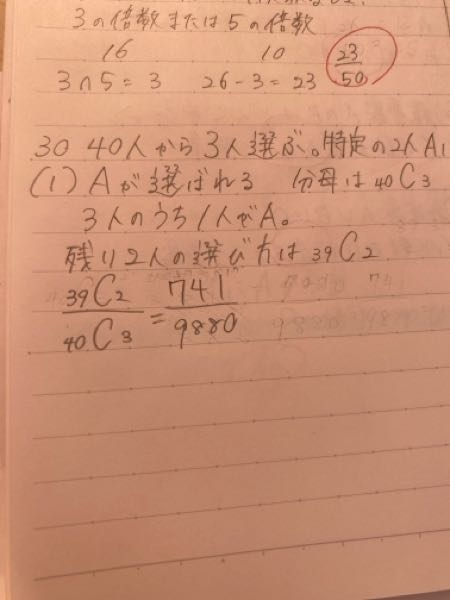 3の倍数または5の倍数
16 10 23/50
3∩5=3 26-3=23
30 40人から3人選ぶ。特定の2人A
(1) Aが選ばれる 分母は 40C3
3人のうち1人がA。
残り2人の選び方は 39C2
39C2/40C3 = 741/9880